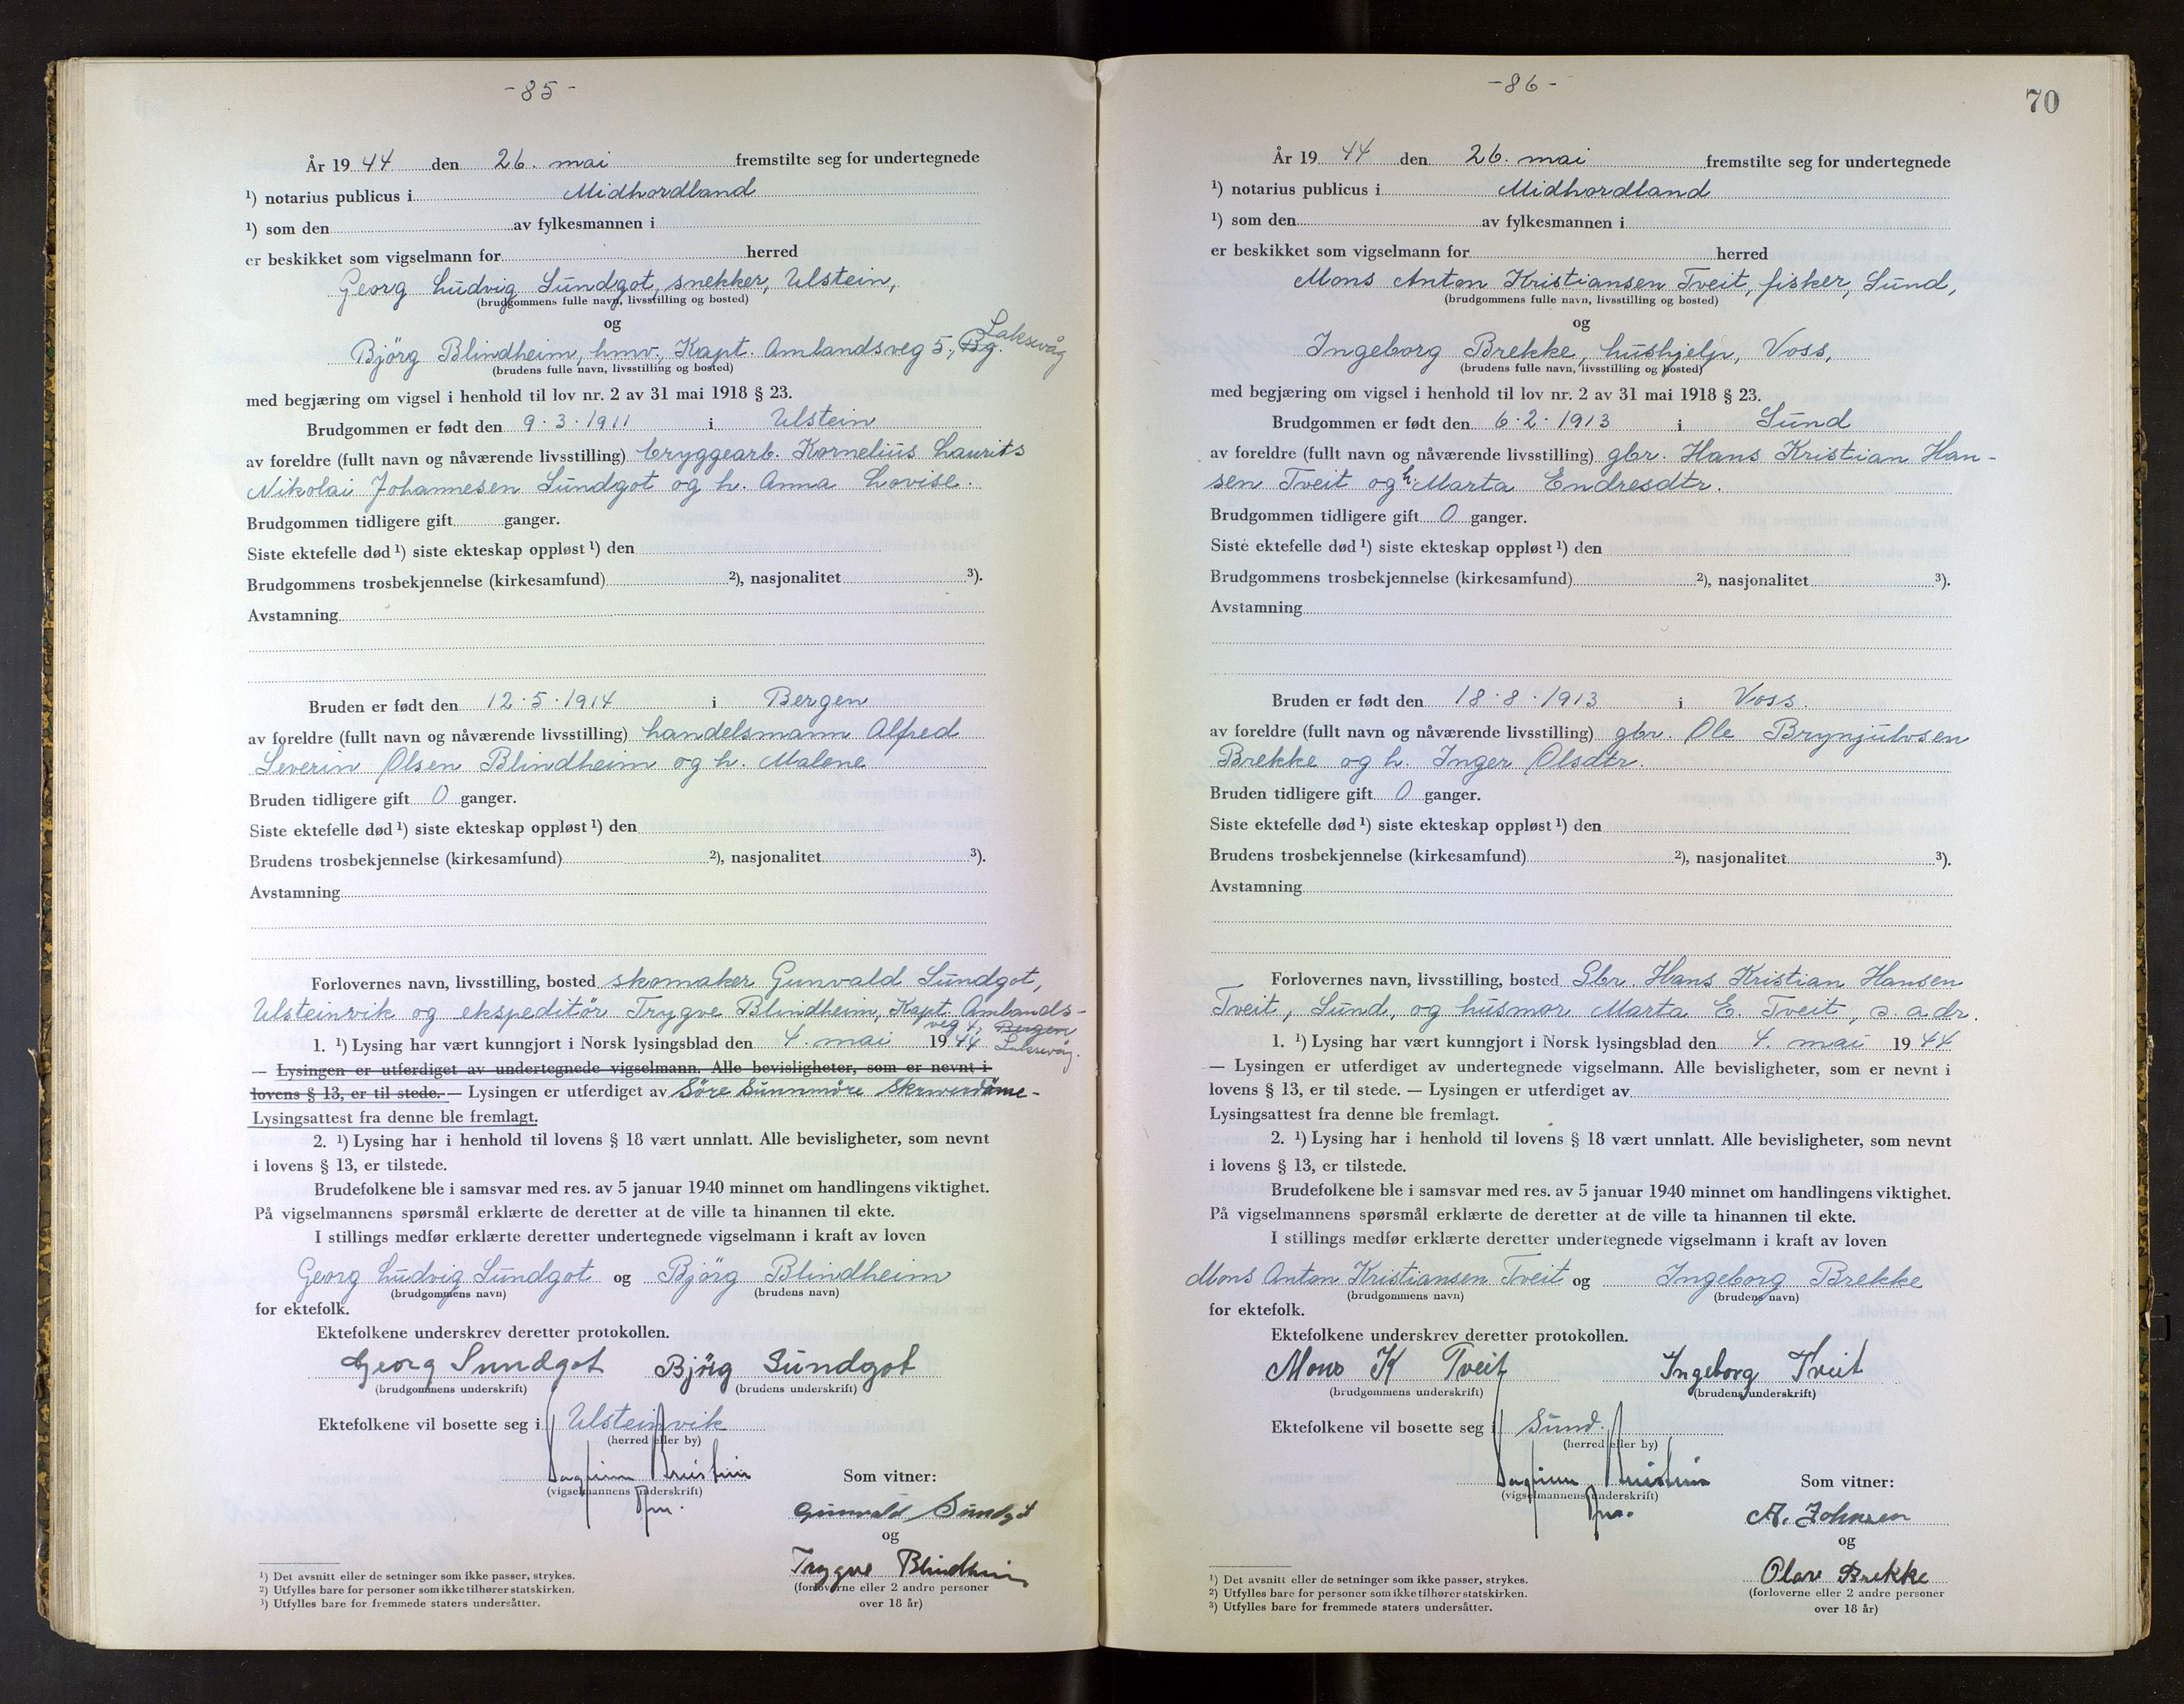 -85-
År 1944 den 26. mai fremstilte seg for undertegnede
¹) notarius publicus i Midhordland
¹) som den av fylkesmannen i
er beskikket som vigselmann for herred
Georg Ludvig Sundgot, snekker, Ulstein,
(brudgommens fulle navn, livsstilling og bosted)
og
Laksevåg
Bjørg Blindheim, hmv., Kapt. Amlandsveg 5, Bg.
(brudens fulle navn, livsstilling og bosted)
med begjæring om vigsel i henhold til lov nr. 2 av 31 mai 1918 § 23.
Brudgommen er født den 9.3.1911 i Ulstein
av foreldre (fullt navn og nåværende livsstilling) bryggearb. Kornelius Laurits
Nikolai Johannesen Sundgot og h. Anna Lovise.
Brudgommen tidligere gift ganger.
Siste ektefelle død ¹) siste ekteskap oppløst ¹) den
Brudgommens trosbekjennelse (kirkesamfund) ²), nasjonalitet ³).
Avstamning
Bruden er født den 12.5.1914 i Bergen
av foreldre (fullt navn og nåværende livsstilling) handelsmann Alfred
Severin Olsen Blindheim og h. Malene
Bruden tidligere gift 0 ganger.
Siste ektefelle død ¹) siste ekteskap oppløst ¹) den
Brudens trosbekjennelse (kirkesamfund) ²), nasjonalitet ³).
Avstamning
Forlovernes navn, livsstilling, bosted skomaker Gunvald Sundgot,
Ulsteinvik og ekspeditör Trygve Blindheim, Kapt. Amlands-
veg 4, Bergen
1. ¹) Lysing har vært kunngjort i Norsk lysingsblad den 4. mai 1944 Laksevåg.
— Lysingen er utferdiget av undertegnede vigselmann. Alle bevisligheter, som er nevnt i
lovens § 13, er til stede. — Lysingen er utferdiget av Söre Sunnmöre Skrwerdöme-
Lysingsattest fra denne ble fremlagt.
2. ¹) Lysing har i henhold til lovens § 18 vært unnlatt. Alle bevisligheter, som nevnt
i lovens § 13, er tilstede.
Brudefolkene ble i samsvar med res. av 5 januar 1940 minnet om handlingens viktighet.
På vigselmannens spørsmål erklærte de deretter at de ville ta hinannen til ekte.
I stillings medfør erklærte deretter undertegnede vigselmann i kraft av loven
Georg Ludvig Sundgot og Bjørg Blindheim
(brudgommens navn) (brudens navn)
for ektefolk.
Ektefolkene underskrev deretter protokollen.
Georg Sundgot Björg Sundgot
(brudgommens underskrift) (brudens underskrift)
Ektefolkene vil bosette seg i Ulsteinvik
(herred eller by)
(vigselmannens underskrift)
Som vitner:
Gunvald Sundgot
og
Trygve Blindheim
(forloverne eller 2 andre personer
over 18 år)
¹) Det avsnitt eller de setninger som ikke passer, strykes.
²) Utfylles bare for personer som ikke tilhører statskirken.
³) Utfylles bare for fremmede staters undersåtter.
-86-
70
År 19 44 den 26. mai fremstilte seg for undertegnede
¹) notarius publicus i Midhordland
¹) som den av fylkesmannen i
er beskikket som vigselmann for herred
Mons Anton Kristiansen Tveit, fisker, Sund,
(brudgommens fulle navn, livsstilling og bosted)
og
Ingeborg Brekke, hushjelp, Voss,
(brudens fulle navn, livsstilling og bosted)
med begjæring om vigsel i henhold til lov nr. 2 av 31 mai 1918 § 23.
Brudgommen er født den 6.2.1913 i Sund
av foreldre (fullt navn og nåværende livsstilling) gbr. Hans Kristian Han-
sen Tveit og h. Marta Endresdtr.
Brudgommen tidligere gift 0 ganger.
Siste ektefelle død ¹) siste ekteskap oppløst ¹) den
Brudgommens trosbekjennelse (kirkesamfund) ²), nasjonalitet ³).
Avstamning
Bruden er født den 18.8.1913 i Voss.
av foreldre (fullt navn og nåværende livsstilling) gbr. Ole Brynjulvsen
Brekke og h. Inger Olsdtr.
Bruden tidligere gift 0 ganger.
Siste ektefelle død ¹) siste ekteskap oppløst ¹) den
Brudens trosbekjennelse (kirkesamfund) ²), nasjonalitet ³).
Avstamning
Forlovernes navn, livsstilling, bosted Gbr. Hans Kristian Hansen
Tveit, Sund, og husmor Marta E. Tveit, s.a.dr.
1. ¹) Lysing har vært kunngjort i Norsk lysingsblad den 4. mai 1944
— Lysingen er utferdiget av undertegnede vigselmann. Alle bevisligheter, som er nevnt i
lovens § 13, er til stede. — Lysingen er utferdiget av
Lysingsattest fra denne ble fremlagt.
2. ¹) Lysing har i henhold til lovens § 18 vært unnlatt. Alle bevisligheter, som nevnt
i lovens § 13, er tilstede.
Brudefolkene ble i samsvar med res. av 5 januar 1940 minnet om handlingens viktighet.
På vigselmannens spørsmål erklærte de deretter at de ville ta hinannen til ekte.
I stillings medfør erklærte deretter undertegnede vigselmann i kraft av loven
Mons Anton Kristiansen Tveit og Ingeborg Brekke
(brudgommens navn) (brudens navn)
for ektefolk.
Ektefolkene underskrev deretter protokollen.
Mons K Tveit Ingeborg Tveit
(brudgommens underskrift) (brudens underskrift)
Ektefolkene vil bosette seg i Sund.
(herred eller by)
(vigselmannens underskrift)
Som vitner:
A. Johnsen
og
Olav Brekke
(forloverne eller 2 andre personer
over 18 år)
¹) Det avsnitt eller de setninger som ikke passer, strykes.
²) Utfylles bare for personer som ikke tilhører statskirken.
³) Utfylles bare for fremmede staters undersåtter.